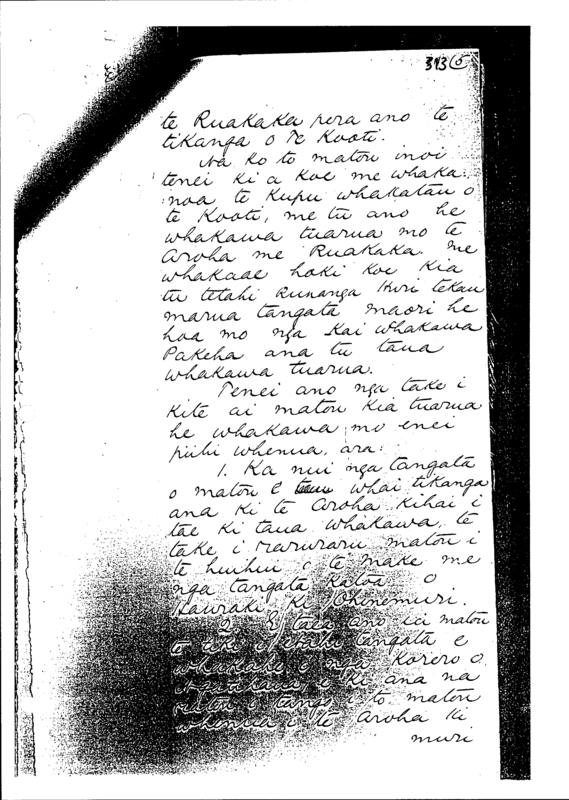 313 5
te Ruakaka pera ano te
tikanga o Te Kooti.
Na ko to matou inoi
tenei ki a koe me whaka-
noa te Kupu whakatau o
te Kooti, me tu ano he
whakawa tuarua mo te
Aroha me Ruakaka. me
whakaae hoki koe kia
tu tetahi Runanga Iwi tekau
marua tangata maori he
hoa mo nga Kai whakawa
Pakeha ana tu taua
whakawa tuarua.
Tenei ano nga take i
kite ai matou kia tuarua
he whakawa mo enei
piihi whenua, ara:
1. Ka nui nga tangata
o matou e whai tikanga
ana ki te Aroha kihai i
tae ki taua whakawa, te
take i raruraru matou i
te huihui i te make me
nga tangata katoa o
Hauraki ki Ohinemuri.
2. E taea ano ia matou
te tiki i etahi tangata e
whakahe i nga Korero o
i ki ana na
ratou i tango i to matou
whenua i te Aroha ki
muri